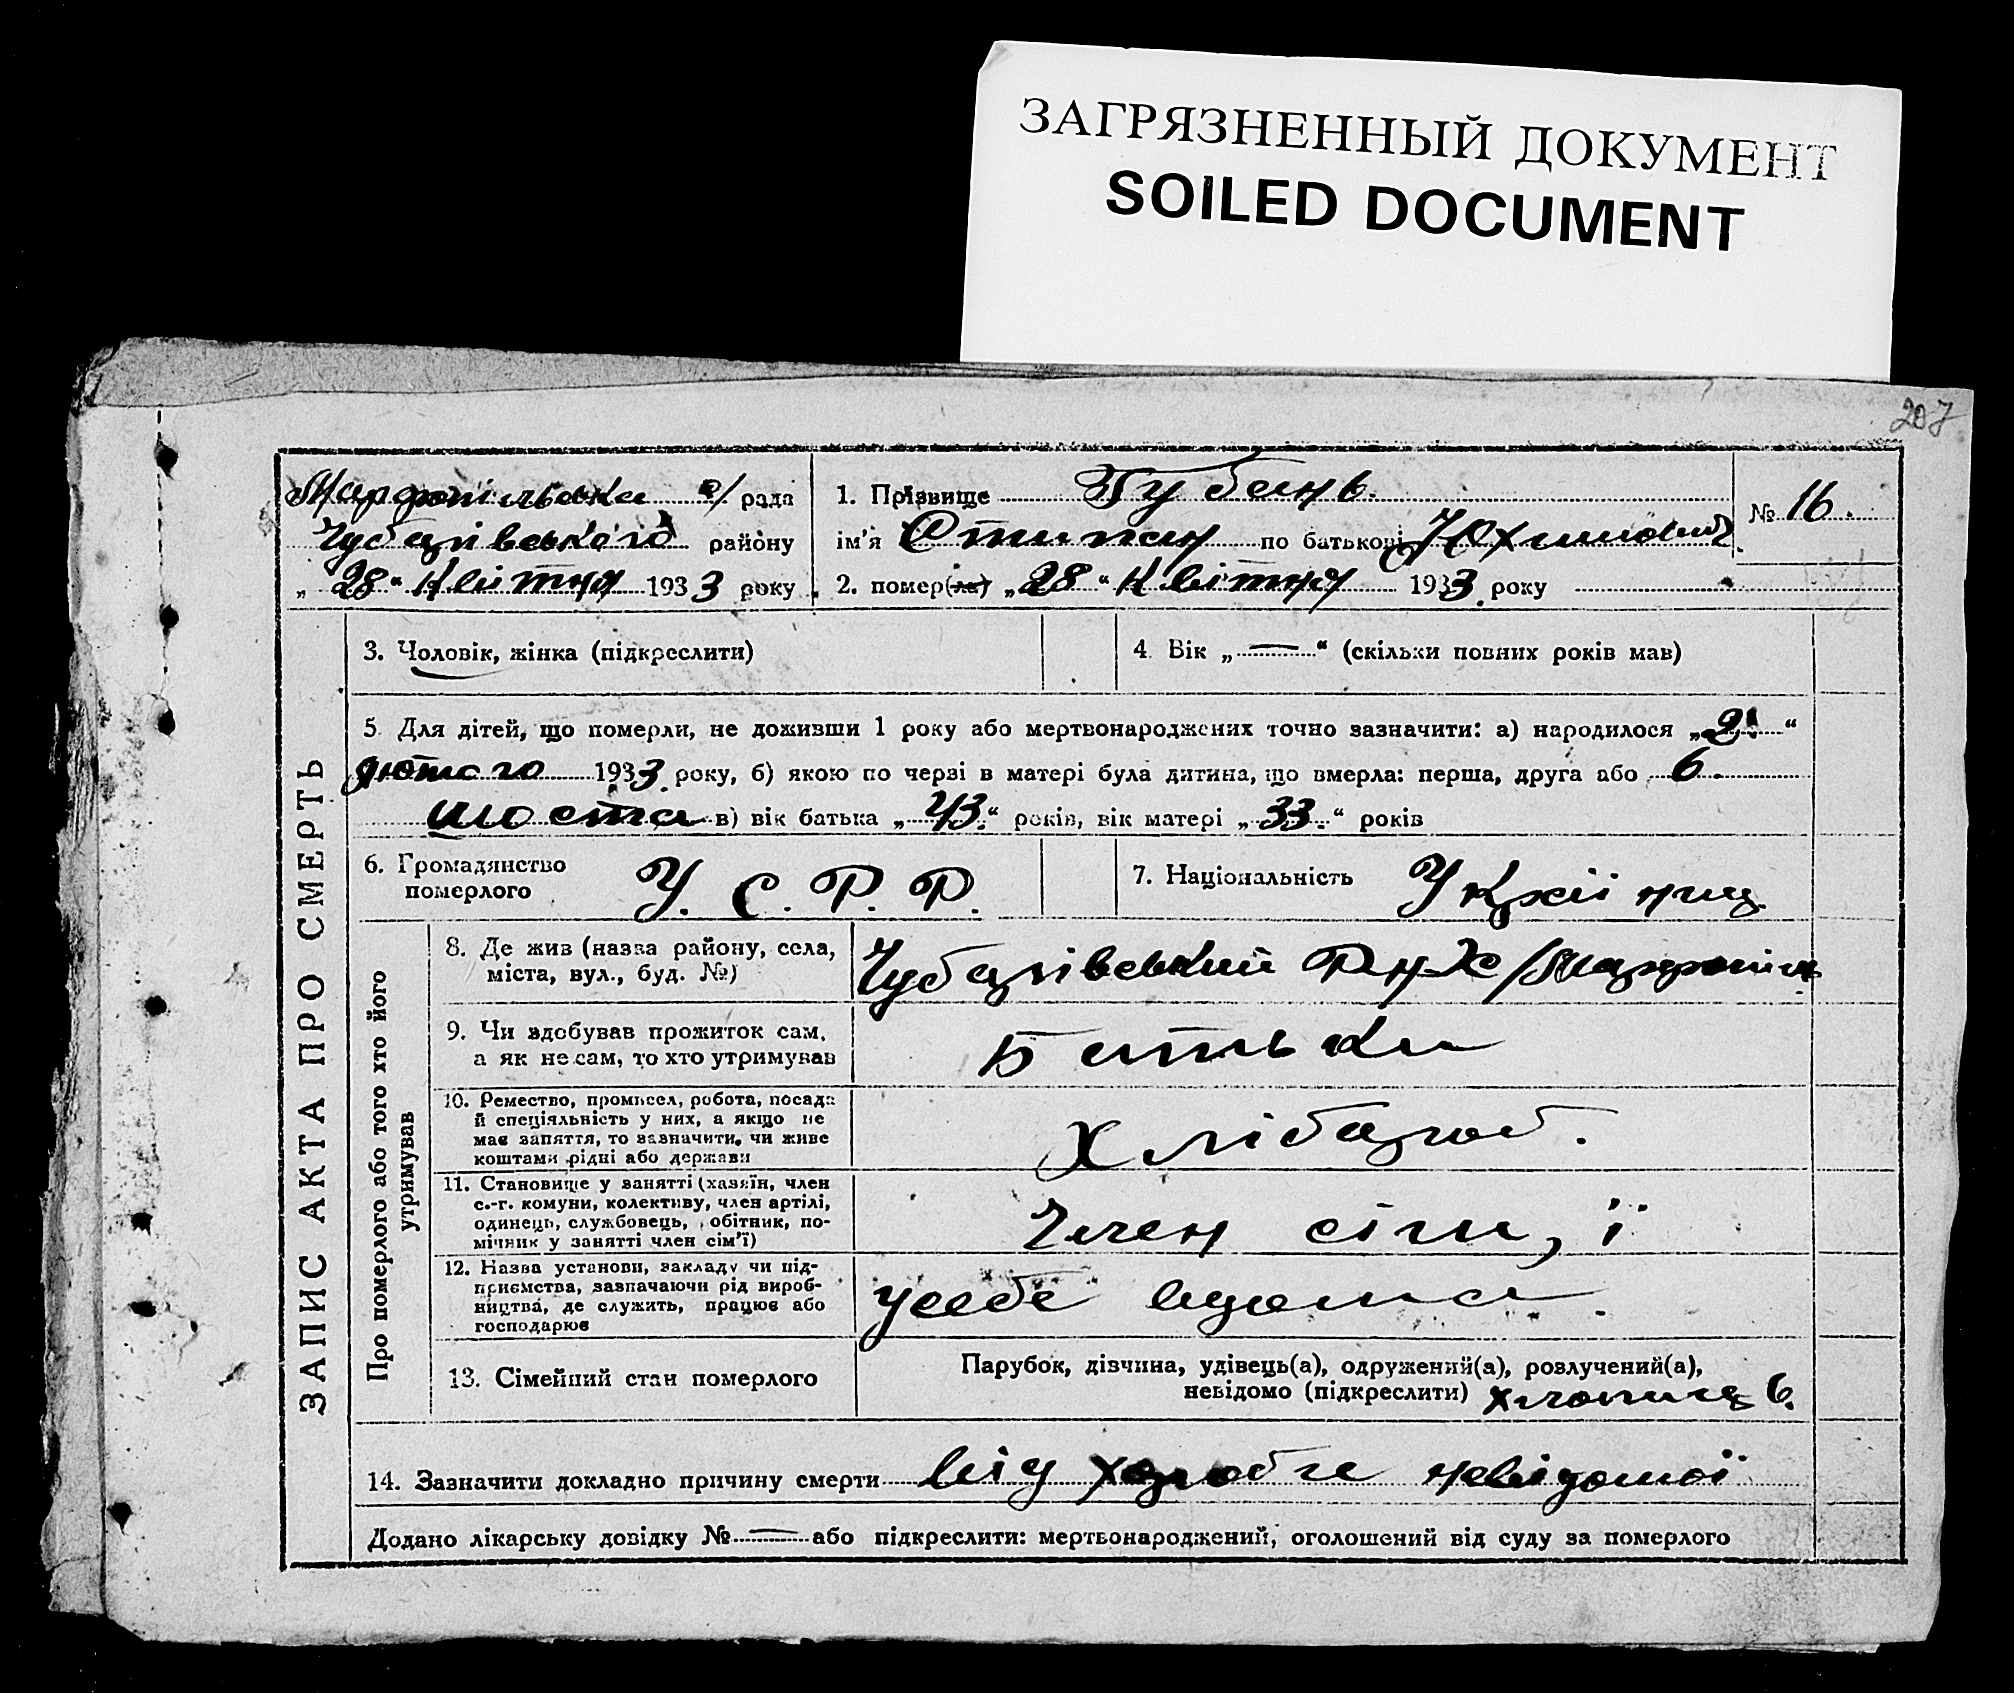 ЗАГРЯЗНЕННЫЙ ДОКУМЕНТ
SOILED DOCUMENT
207
Марфопільська с/ рада
Чубарівського району
„28“ Квітня 1933 року
1. Прізвище Губань.
ім'я Стипан по батькові Юхимович
2. помер(ла) „28“ Квітня 1933 року
№ 16.
ЗАПИС АКТА ПРО СМЕРТЬ
3. Чоловік, жінка (підкреслити)
4. Вік „—“ (скільки повних років мав)
5. Для дітей, що померли, не доживши 1 року або мертвонароджених точно зазначити: а) народилося „2“
лютого 1933 року, б) якою по черзі в матері була дитина, що вмерла: перша, друга або 6.
шоста в) вік батька „43“ років, вік матері „33.“ років
6. Громадянство
померлого У. С. Р. Р.
7. Національність Україниц
Про померлого або того хто його
утримував
8. Де жив (назва району, села,
міста, вул., буд. №)
Чубарівський Р-н Х/Марфопіль
9. Чи здобував прожиток сам,
а як не сам, то хто утримував
Батьки
10. Ремество, промисел, робота, посада
й спеціяльність у них, а якщо не
має заняття, то зазначити, чи живе
коштами рідні або держави
Хлібароб.
11. Становище у занятті (хазяїн, член
с.-г. комуни, колективу, член артілі,
одинець, службовець, робітник, по-
мічник у занятті член сім'ї)
Член сім,ї
12. Назва установи, закладу чи під-
приємства, зазначаючи рід вироб-
ництва, де служить, працює або
господарює
усебе вдома.
13. Сімейний стан померлого
Парубок, дівчина, удівець(а), одружений(а), розлучений(а),
невідомо (підкреслити) хлопиць
14. Зазначити докладно причину смерти від хороби невідомої
Додано лікарську довідку № — або підкреслити: мертвонароджений, оголошений від суду за померлого